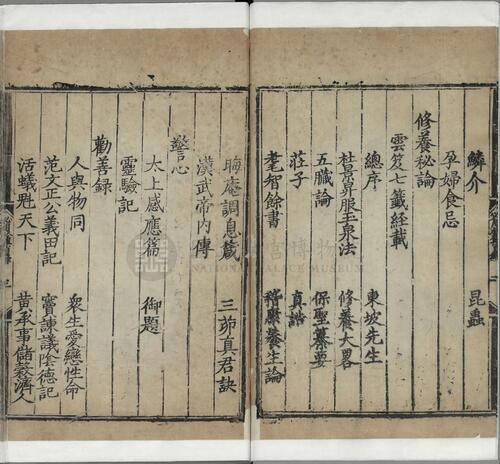 鱗介 昆蟲
孕婦食忌
修養秘論
雲笈七籤經載
總序 東坡先生
杜景昇服玉泉法 修養大畧
五臟論 保聖纂要
莊子 真誥
耄智餘書 嵇康養生論
晦庵調息箴 三茆真君訣
漢武帝內傳
警心
太上感應篇 御題
靈驗記
勸善録
人與物同 衆生愛戀性命
范文正公義田記 竇諫議陰德記
活蟻魁天下 黄承事儲穀濟人
NATIONAL PALACE MUSEUM